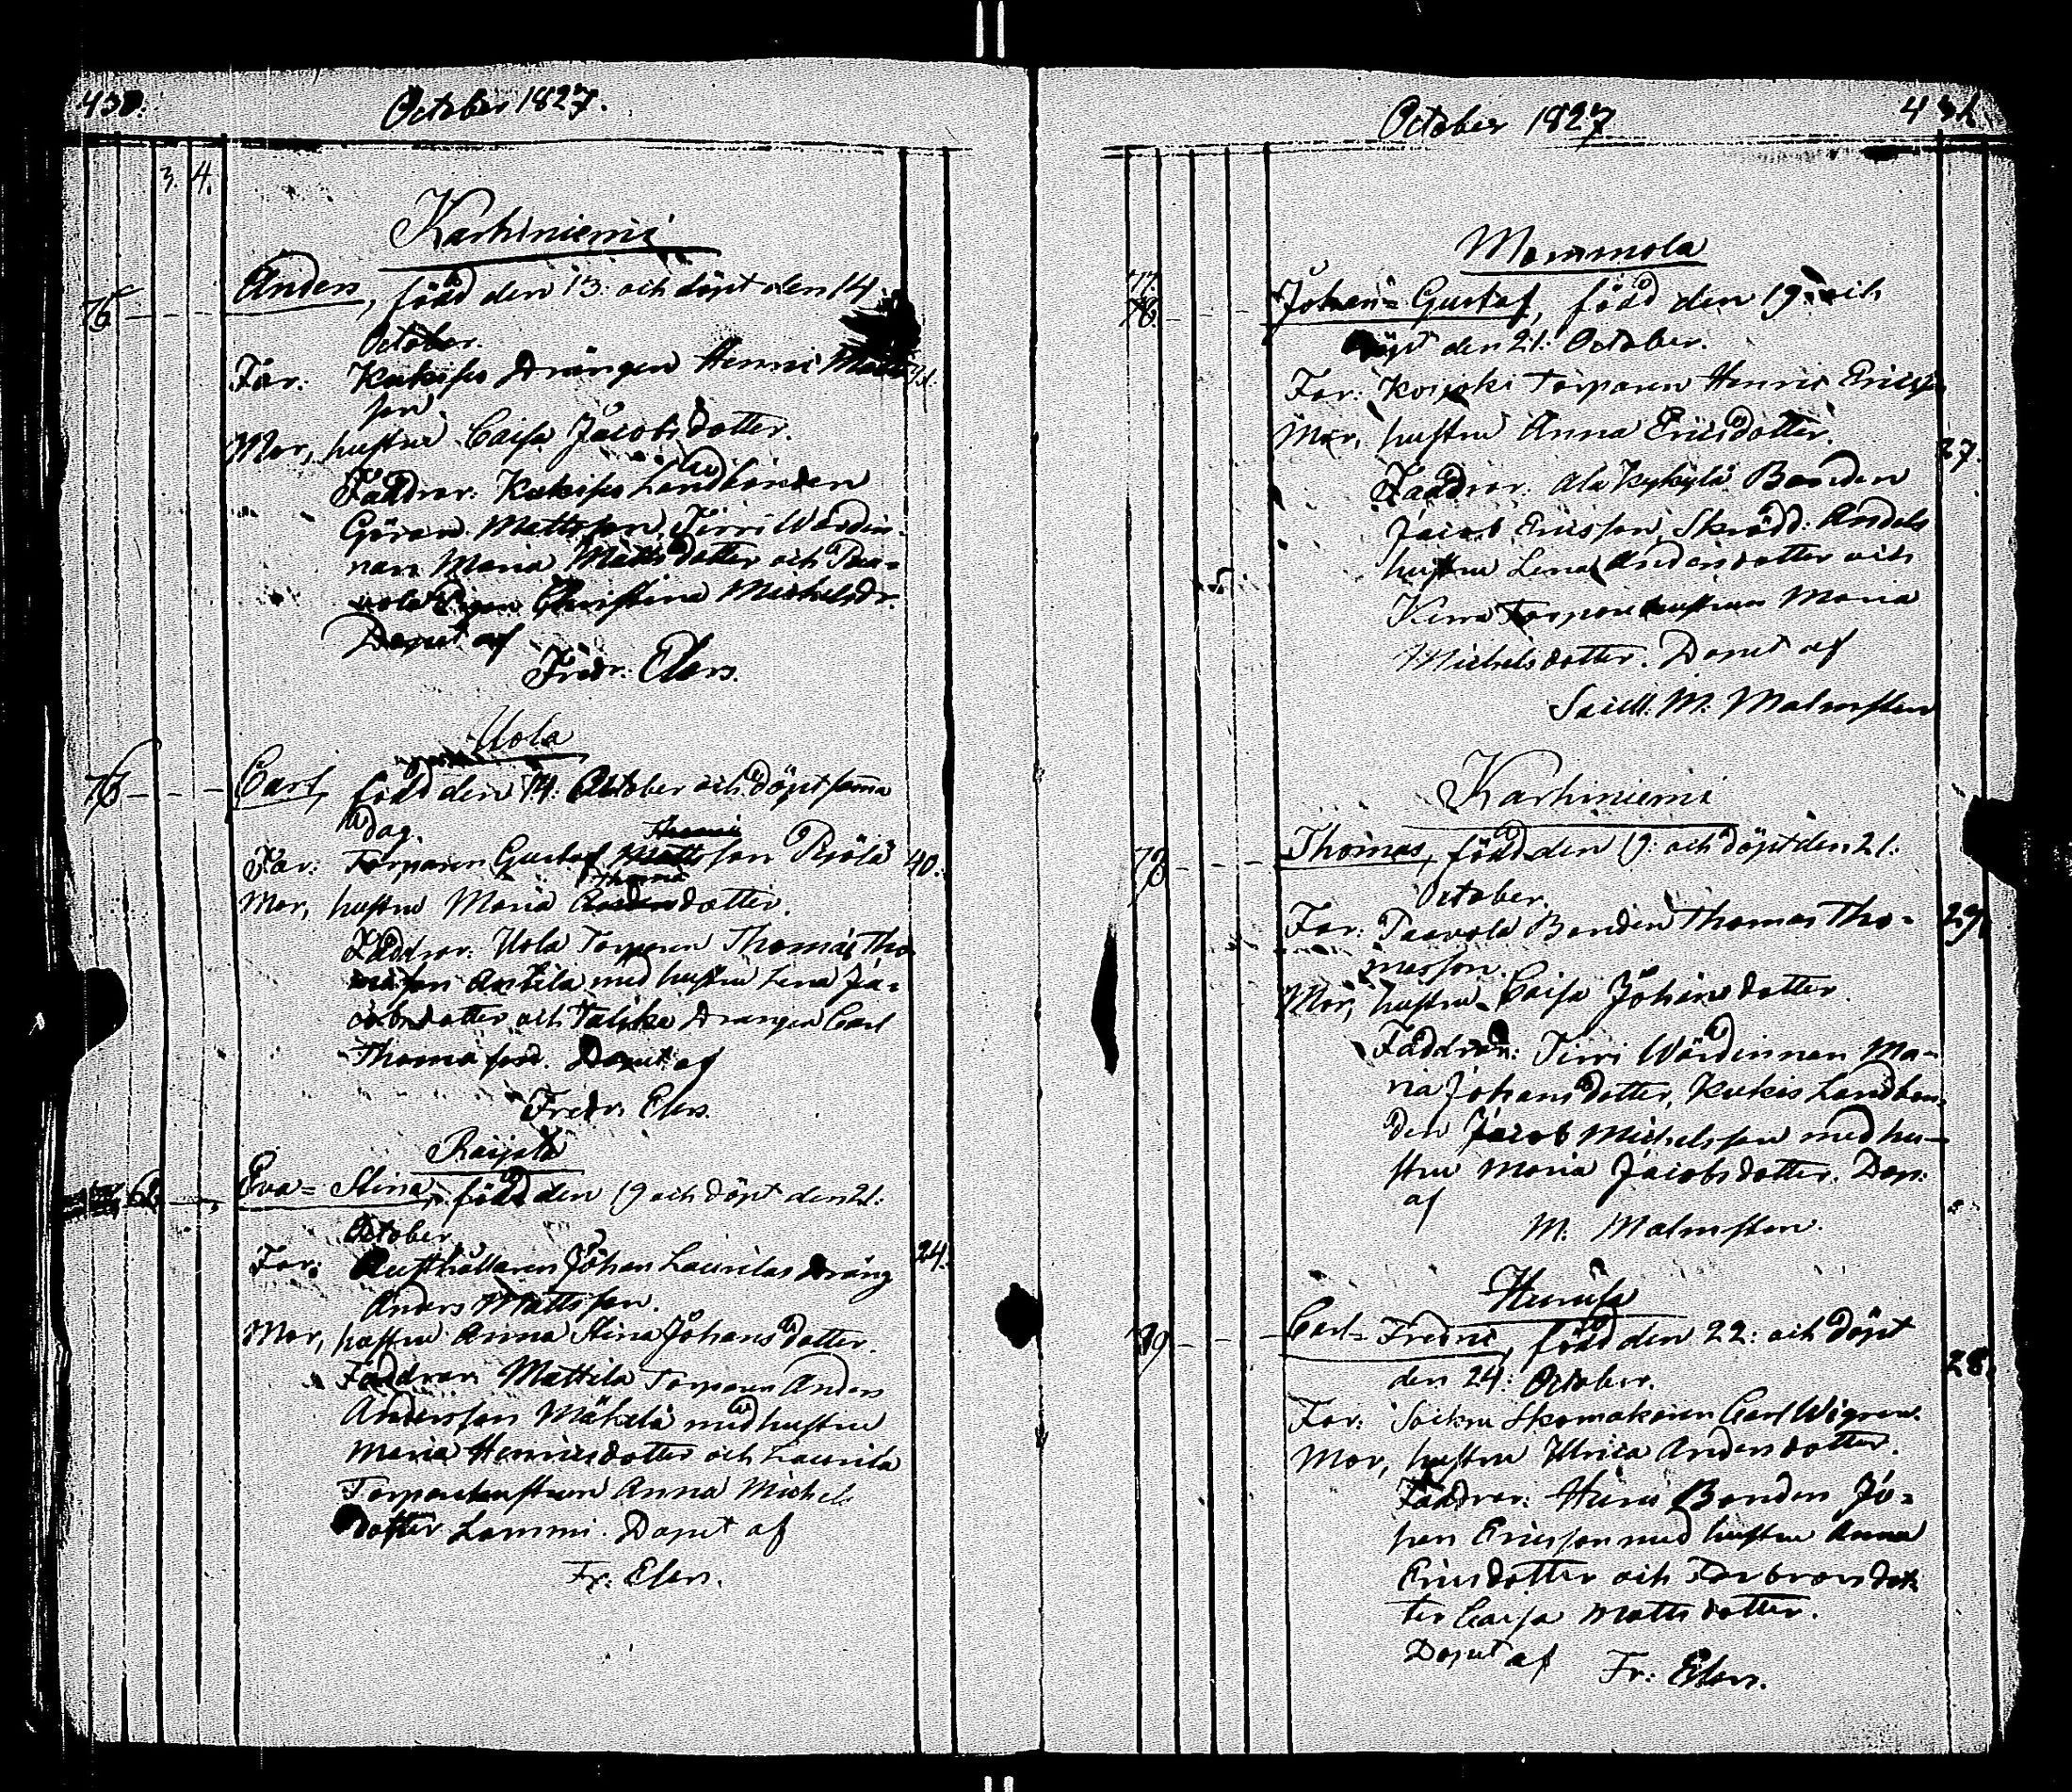 430.
October 1827.
3. 4.
Karhiniemi
75 Anders, född den 13: och döpt den 14
October.
Far: Kukisko Drängen Henric Matts
son
Mor, hustru Caisa Jacobs dotter.
Faddrar: Kukisko Landbonden
Göran Mattsson, Jirri Wärdin-
nan Maria Matts dotter och Paa-
vola Pigan Christina Michelsdr.
Döput af
Fredr. Elers.
Uola
76 Carl, född den 14: October och döpt samma
dag.
Far: Torparen Gustaf Thomæ son Pijölä 40.
Mor, hustru Maria Thomæ dotter.
Faddrar: Uola Torparen Thomas Tho-
mæson Antila med hustru Lena Ja-
cobsdotter och Talikka Drängen Carl
Thomæson. Döput af
Fredr. Elers.
Raijala
62. Eva=Stina, född den 19 och döpt den 21:
October
Far: Rusthållaren Johan Laurilas dräng 24.
Anders Mattsson.
Mor, hustru Anna Stina Johans dotter.
Faddrar: Mattila Torparen Anders
Andersson Mäkelä med hustru
Maria Henricsdotter och Laurila
Torparehustrun Anna Michels
dotter Lammi. Döput af
Fr: Elers.
October 1827
431.
Mommola
77. Johan=Gustaf, född den 19: och
döpt den 21: October.
Far: Koijoki Torparen Henric Ericsson
Mor, hustru Anna Ericsdotter. 27.
Faddrar: Ala Kyhylä Bonden
Jacob Ericsson, Skrädd: Anders
hustru Lena Andersdotter och
Torpare hustrun Maria
Michelsdotter. Döput af
Saicll. M. Malmsten
Karhiniemi
78 Thomas, född den 19: och döpt den 21:
October.
Far: Paavola Bonden Thomas Tho- 29.
masson.
Mor, hustru Caisa Johans dotter.
Faddrar: Jirri Wärdinnan Ma-
ria Johans dotter, Kukis Landbon-
den Jacob Michelsson med hu-
stru Maria Jacobs dotter. Döp:
af
M. Malmsten.
Hunisa
79 Carl=Fredric, född den 22: och döpt
den 24: October. 28.
Far: Sockne Skomakaren Carl Wigren.
Mor, hustru Ulrica Anders dotter.
Faddrar: Huni Bonden Jo-
han Ericsson med hustru Anna
Erics dotter och Farbrors dot-
ter Caisa Matts dotter.
Döput af Fr: Elers.